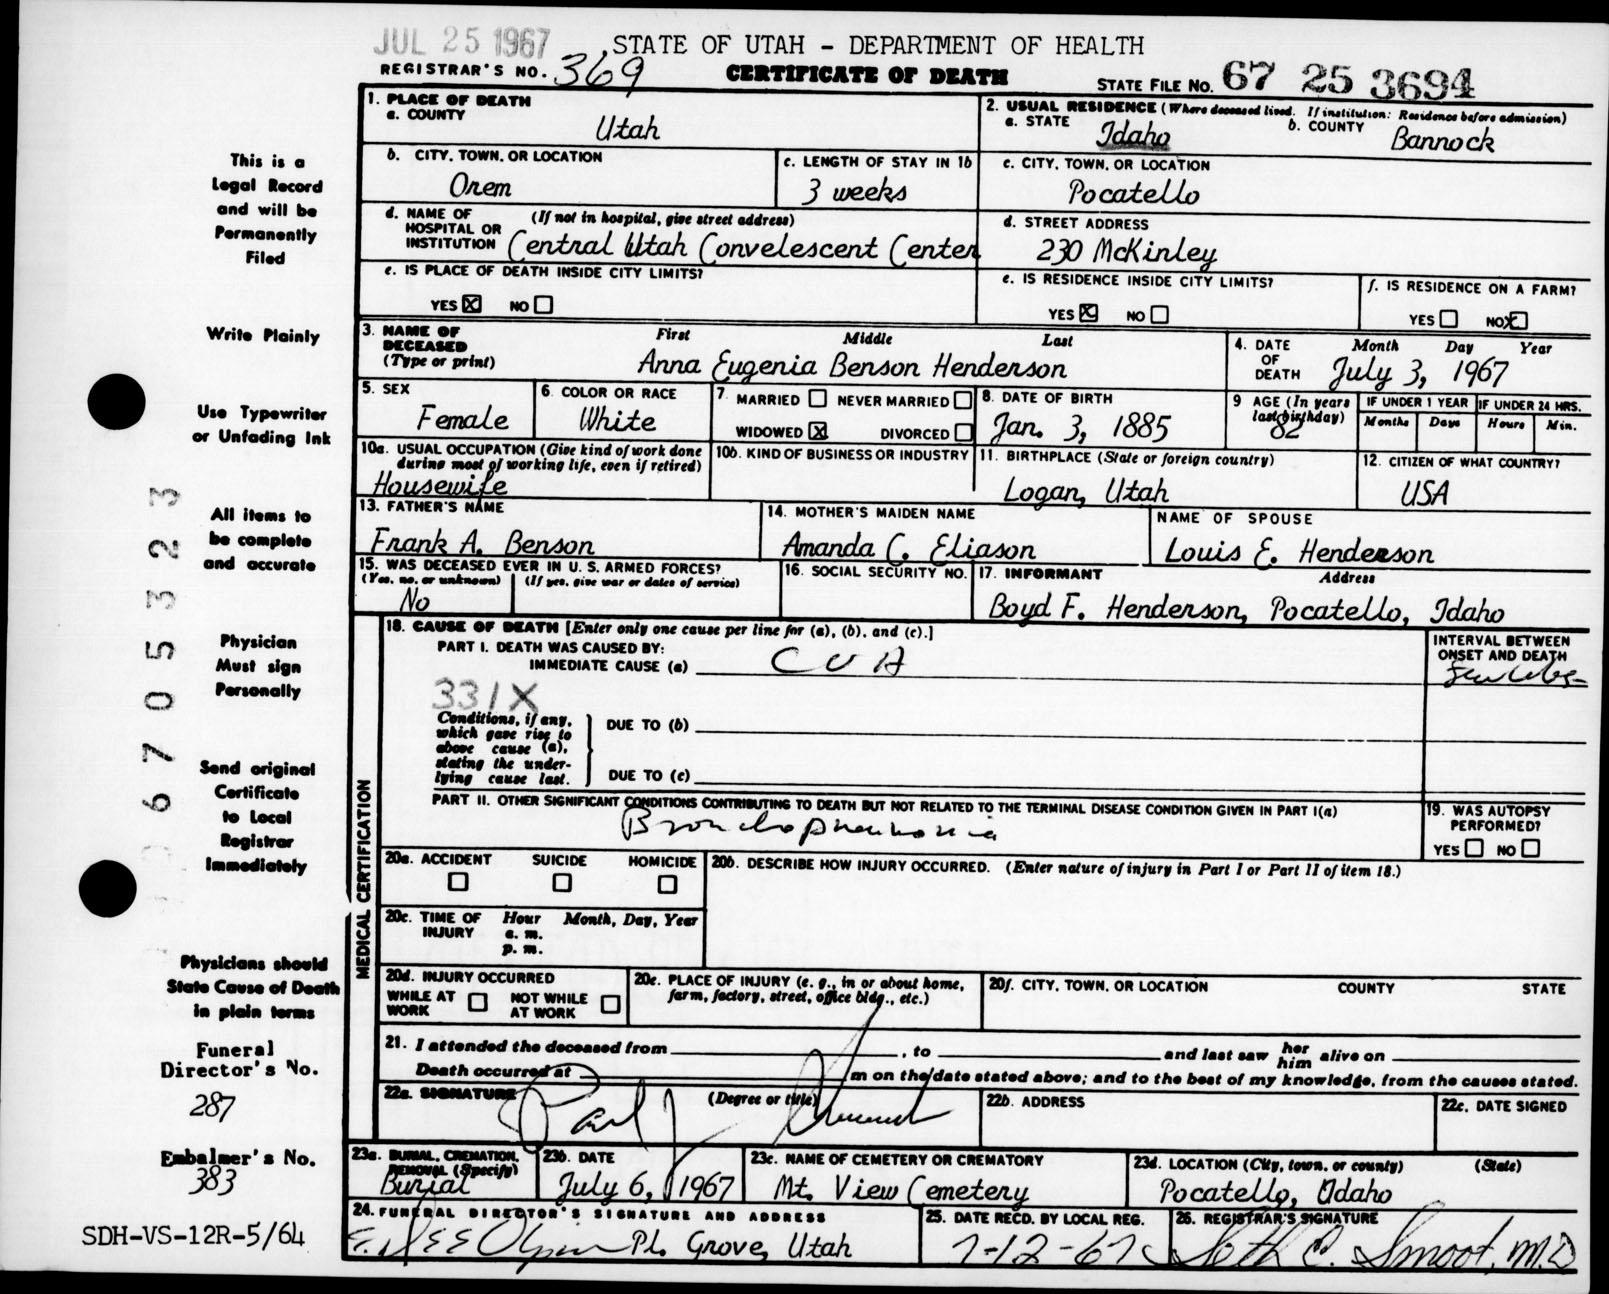 JUL 25 1967 STATE OF UTAH - DEPARTMENT OF HEALTH
REGISTRAR'S NO. 369 CERTIFICATE OF DEATH STATE FILE NO. 67 25 3694
1. PLACE OF DEATH
a. COUNTY
Utah
2. USUAL RESIDENCE (Where deceased lived. If institution: Residence before admission)
a. STATE Idaho b. COUNTY Bannock
b. CITY, TOWN, OR LOCATION
Orem
c. LENGTH OF STAY IN 1b
3 weeks
c. CITY, TOWN, OR LOCATION
Pocatello
d. NAME OF HOSPITAL OR INSTITUTION (If not in hospital, give street address)
Central Utah Convelescent Center
d. STREET ADDRESS
230 McKinley
e. IS PLACE OF DEATH INSIDE CITY LIMITS?
YES X NO
e. IS RESIDENCE INSIDE CITY LIMITS?
YES X NO
f. IS RESIDENCE ON A FARM?
YES NO X
3. NAME OF DECEASED (Type or print)
First Middle Last
Anna Eugenia Benson Henderson
4. DATE OF DEATH Month Day Year
July 3, 1967
5. SEX
Female
6. COLOR OR RACE
White
7. MARRIED NEVER MARRIED
WIDOWED X DIVORCED
8. DATE OF BIRTH
Jan. 3, 1885
9 AGE (In years last birthday)
82
IF UNDER 1 YEAR
Months Days
IF UNDER 24 HRS.
Hours Min.
10a. USUAL OCCUPATION (Give kind of work done during most of working life, even if retired)
Housewife
10b. KIND OF BUSINESS OR INDUSTRY
11. BIRTHPLACE (State or foreign country)
Logan, Utah
12. CITIZEN OF WHAT COUNTRY?
USA
13. FATHER'S NAME
Frank A. Benson
14. MOTHER'S MAIDEN NAME
Amanda C. Eliason
NAME OF SPOUSE
Louis E. Henderson
15. WAS DECEASED EVER IN U. S. ARMED FORCES?
(Yes, no, or unknown) (If yes, give war or dates of service)
No
16. SOCIAL SECURITY NO.
17. INFORMANT Address
Boyd F. Henderson, Pocatello, Idaho
MEDICAL CERTIFICATION
18. CAUSE OF DEATH [Enter only one cause per line for (a), (b), and (c).]
PART I. DEATH WAS CAUSED BY:
IMMEDIATE CAUSE (a) CVA
INTERVAL BETWEEN ONSET AND DEATH
331X
Conditions, if any, which gave rise to above cause (a), stating the underlying cause last.
DUE TO (b)
DUE TO (c)
PART II. OTHER SIGNIFICANT CONDITIONS CONTRIBUTING TO DEATH BUT NOT RELATED TO THE TERMINAL DISEASE CONDITION GIVEN IN PART I(a)
Bronchopneumonia
19. WAS AUTOPSY PERFORMED?
YES NO
20a. ACCIDENT SUICIDE HOMICIDE
20b. DESCRIBE HOW INJURY OCCURRED. (Enter nature of injury in Part I or Part II of item 18.)
20c. TIME OF INJURY Hour Month, Day, Year
a. m.
p. m.
20d. INJURY OCCURRED
WHILE AT WORK NOT WHILE AT WORK
20e. PLACE OF INJURY (e. g., in or about home, farm, factory, street, office bldg., etc.)
20f. CITY, TOWN, OR LOCATION COUNTY STATE
21. I attended the deceased from , to and last saw her him alive on
Death occurred at m on the date stated above; and to the best of my knowledge, from the causes stated.
22a. SIGNATURE (Degree or title)
Paul J.
22b. ADDRESS
22c. DATE SIGNED
23a. BURIAL, CREMATION, REMOVAL (Specify)
Burial
23b. DATE
July 6, 1967
23c. NAME OF CEMETERY OR CREMATORY
Mt. View Cemetery
23d. LOCATION (City, town, or county) (State)
Pocatello, Idaho
24. FUNERAL DIRECTOR'S SIGNATURE AND ADDRESS
Pl. Grove, Utah
25. DATE RECD. BY LOCAL REG.
7-12-67
26. REGISTRAR'S SIGNATURE
Seth E. Smoot, M.D
This is a
Legal Record
and will be
Permanently
Filed
Write Plainly
Use Typewriter
or Unfading Ink
All items to
be complete
and accurate
Physician
Must sign
Personally
Send original
Certificate
to Local
Registrar
Immediately
Physicians should
State Cause of Death
in plain terms
Funeral
Director's No.
287
Embalmer's No.
383
SDH-VS-12R-5/64
06705323